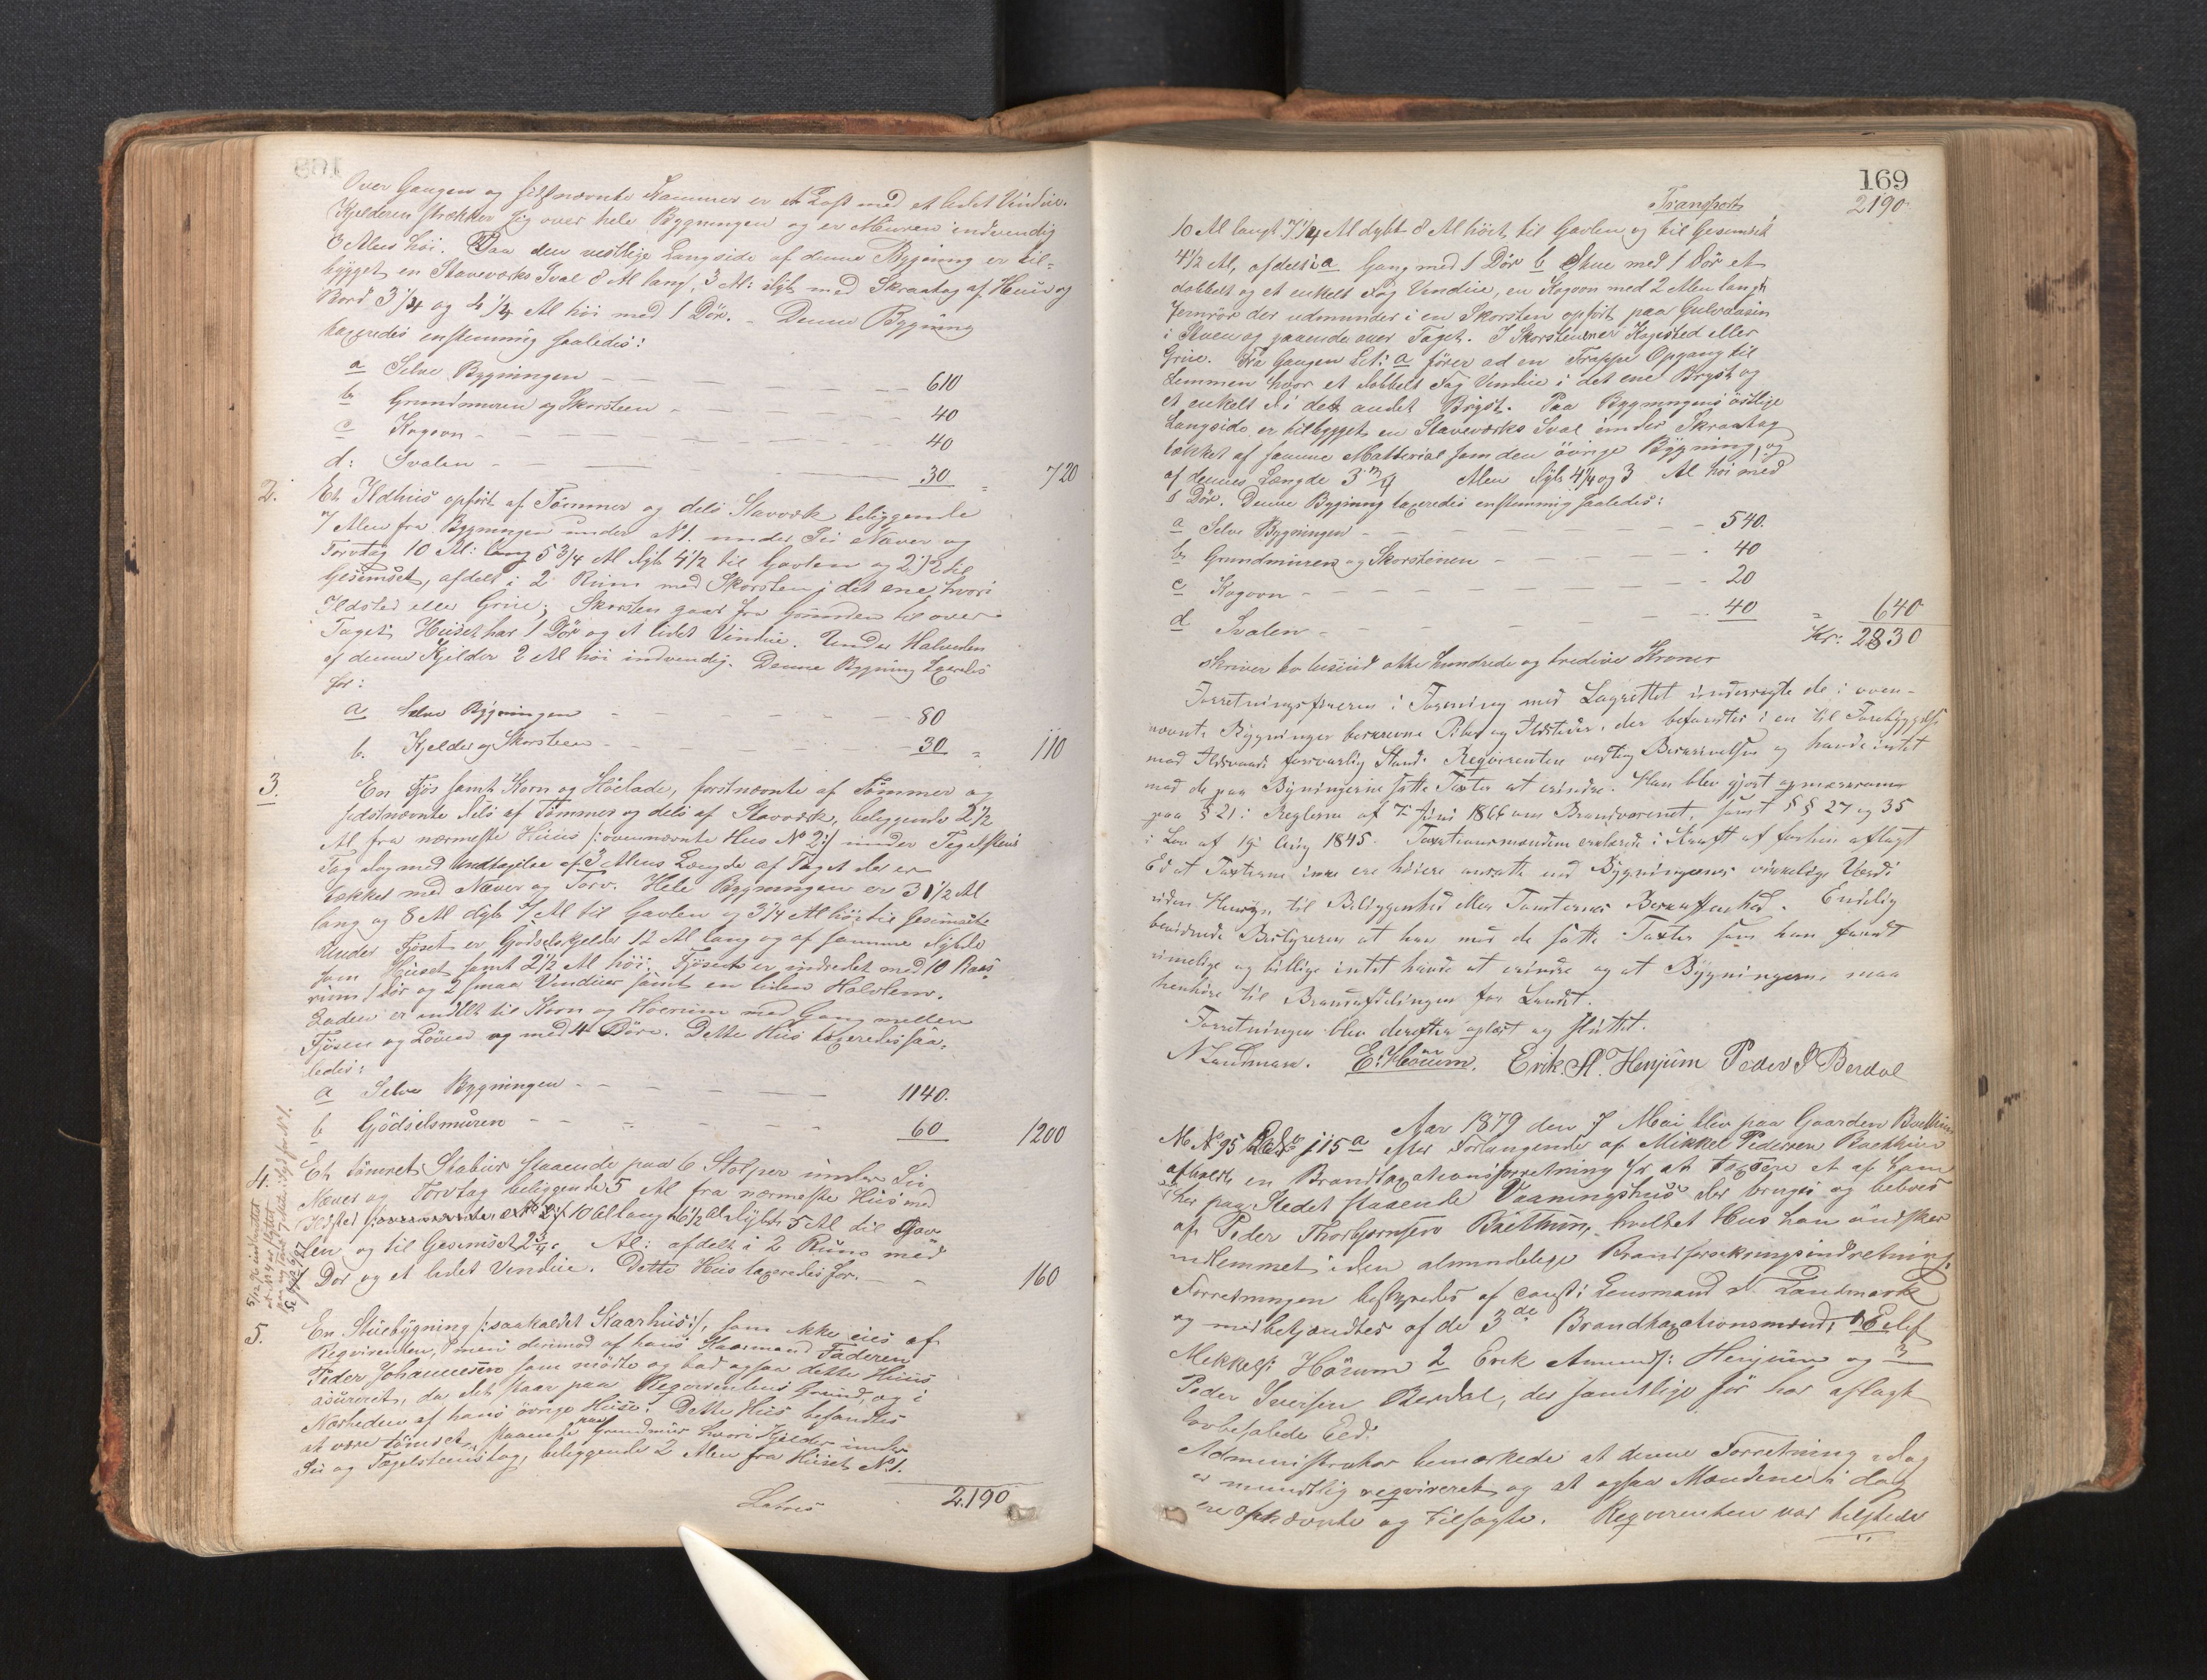 Over Gangen og sidstnævnte Kammer er et Loft med et lidet Vindue.
Kjelderen strækker sig over hele Bygningen og er Muren indvendig
3 Alen høi. Paa den vestlige Langside af denne Bygning er til-
bygget en Staveværks Sval 8 Al lang, 3 Al: dyb med Skraatag af Heller og
Bord 3 1/4 og 4 1/4 Al høi med 1 Dør. - Denne Bygning
taxeredes enstemmig saaledes:
a Selve Bygningen - 610
b Grundmuren og Skorsteen - 40
c Kogovn - 40
d: Svalen - 30 = 720
2. Et Ildhus opført af Tømmer og dels Stavværk beliggende
7 Alen fra Bygningen under N 1. under Sii Næver og
Torvtag 10 Al: lang 5 3/4 Al dyb 4 1/2 til Gavlen og 2 1/2 til
Gesimset, afdelt i 2 Rum med Skorsten i det ene hvori
Ildsted eller Grue; Skorsten gaar fra Grunden til over
Taget. Huset har 1 Dør og et lidet Vindue. Under Halvdelen
af denne Kjelder 2 Al høi indvendig. Denne Bygning taxeredes
for:
a Selve Bygningen - 80
b. Kjelder og Skorsteen - 30 = 110
3. En Fjøs samt Korn og Høelade, førstnævnte af Tømmer og
sidstnævnte dels af Tømmer og dels af Stavværk, beliggende 2 1/2
Al fra nærmeste Huus /: ovennævnte Hus No 2:/ under Tegelsteens
Tag dog med Undtagelse af 3 Alens Længde af Taget der er
tækket med Næver og Torv. Hele Bygningen er 31 1/2 Al
lang og 8 Al dyb 7 Al til Gavlen og 3 1/4 Al høi til Gesimset
Under Fjøset er Gjødselskjelder 12 Al lang og af samme Dybde
som Huset samt 2 1/2 Al høi. Fjøset er indredet med 10 Baas
rum 1 Dør og 2 smaa Vinduer samt en liden Halvlem.
Laden er inddelt til Korn og Høerum med Gang mellem
Fjøsen og Løven og med 4 Døre. Dette Hus taxeredes saa-
ledes:
a Selve Bygningen - 1140.
b Gjødselsmuren - 60 1200
4. Et tømret Stabur staaende paa 6 Stolper under Sii
Næver og Torvtag beliggende 5 Al fra nærmeste Hus med
Ildsted 10 Al lang 6 1/2 Al dybt 5 Al til Gav
len og til Gesimset 2 3/4 Al: afdelt i 2 Rum med
1 Dør og et lidet Vindue. Dette Hus taxeredes for. - 160
5. En Stuebygning /: saakaldet Kaarhus :/, som ikke eies af
Reqvirenten, men derimod af hans Kaarmand Faderen
Peder Johannesen som mødte og bad ogsaa dette Huus
asureret, da det staar paa Reqvirentens Grund, og i
Nærheden af hans øvrige Huse. Dette Hus befandtes
at være tømret, staaende paa Grundmur hvori Kjelder under
Sii og Tægelsteenstag, beliggende 2 Alen fra Huset N 1.
Latus 2190
169
Transport 2190
10 Al langt 7 1/4 Al dybt 8 Al høit til Gavlen og til Gesimset
4 1/2 Al, afdelt i a Gang med 1 Dør b Stue med 1 Dør et
dobbelt og et enkelt Fag Vindue, en Kogovn med 2 Alen langt
Jernrør der udmunder i en Skorsten opført paa Gulvaasen
i Stuen og gaaende over Taget. I Skorstenen er Kogested eller
Grue. Fra Gangen Lit: a fører ad en Trappe Opgang til
Lemmen hvor et dobbelt Fag Vindue i det ene Bryst og
et enkelt d i det andet Bryst. Paa Bygningens østlige
Langside er tilbygget en Staveværks Sval under Skraatag
tækket af samme Matterial som den øvrige Bygning, og
af dennes Længde 3 Alen dyb 4 1/4 og 3 Al høi med
1 Dør. Denne Bygning taxeredes enstemmig saaledes:
a Selve Bygningen - 540.
b Grundmuren og Skorstenen - 40
c Kogovn - 20
d Svalen - 40 = 640
Kr: 2830
Skriver to tusind otte hundrede og tredive Kroner
Forretningsføreren i Forening med Lagrettet undersøgte de i oven-
nævnte Bygninger beskrevne Piber og Ildsteder, der befandtes i en til Forebyggelse
mod Ildsvaade forsvarlig Stand. Reqvirenten vedtog Beskrivelsen og havde intet
mod de paa Bygningerne satte Taxter at erindre. Han blev gjort opmærksom
paa § 21 i Reglerne af 7 Juni 1866 om Brandvæsenet, samt § § 27 og 35
i Lov af 19 Aug 1845. Taxationsmændene erklærede i Kraft af forhen aflagt
Ed at Taxterne ikke ere høiere ansatte end Bygningernes virkelige Værdi
uden Hensyn til Beliggenhed eller Tomternes Beskaffenhed. Endelig
bevidnede Bestyreren at han mod de satte Taxter som han fandt
rimelige og billige intet havde at erindre og at Bygningerne maa
henhøre til Brandafdelingen for Landet.
Forretningen blev derefter oplæst og sluttet.
N Landmark. E: Hørum. Erik. A. Henjum Peder S Berdal
Aar 1879 den 7 Mai blev paa Gaarden Bæthun
M No 95 115 a efter Forlangende af Mikkel Pedersen Baethun
afholdt en Brandtaxationsforretning for at taxere et af ham
her paa Stedet staaende Vaaningshus der bruges og beboes
af Peder Thorbjørnsen Bæthun, hvilket Hus han ønsker
indlemmet i den almindelige Brandforsikringsindretning.
Forretningen bestyredes af const: Lensmand N. Landmark
og medbetjendtes af de 3de Brandtaxationsmænd, 1 Elef
Mikkels: Hørum 2 Erik Amunds: Henjum og 3
Peder Iversen Berdal, der samtlige før har aflagt
lovbefalede Eed.
Administrator bemærkede at denne Forretning idag
er mundtlig reqvireret og at ogsaa Mændene i dag
ere opnævnte og tilsagte. Reqvirenten var tilstede